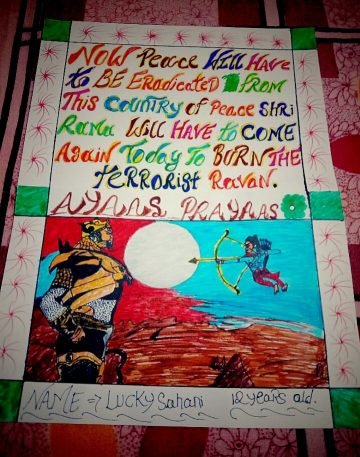 Now Peace Will Have
to BE ERadicated FROM
This COUNTRY of Peace SHRI
Rama Will Have to COME
Again Today To BURN THE
TERRORIST Ravan.
AYAAS PRAYAAS
NAME => LUCKY Sahani 12 years old.